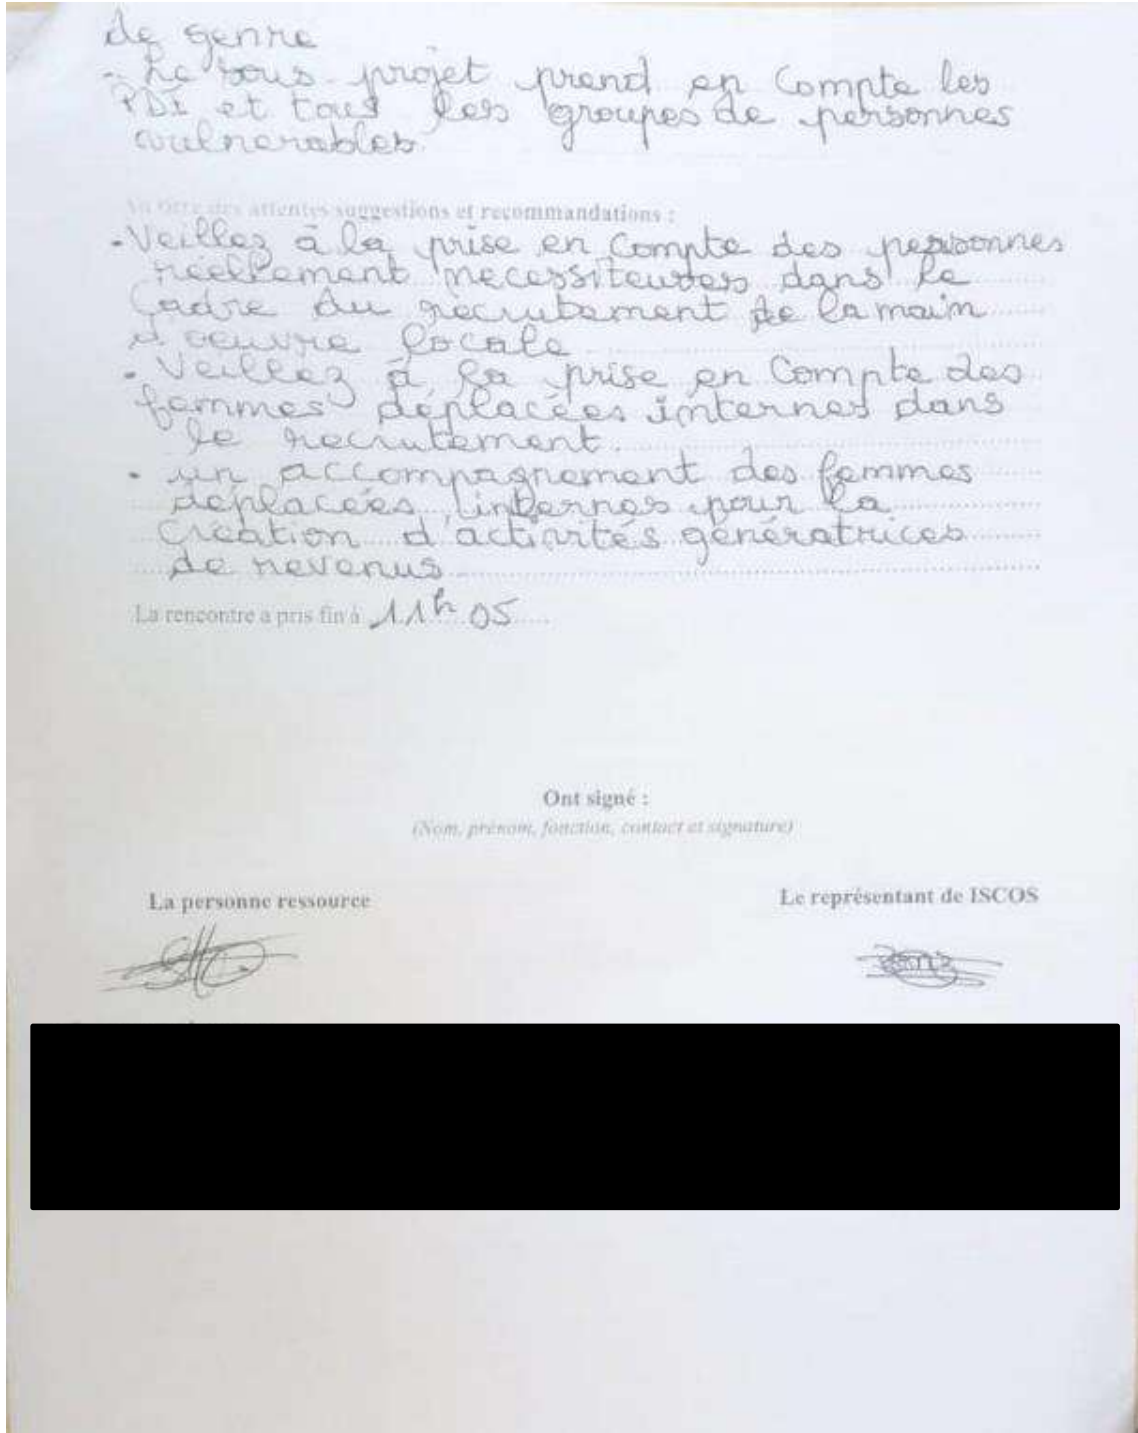 de genre
- Le sous projet prend en Compte les
PDI et tous les groupes de personnes
vulnerables.
Au titre des attentes suggestions et recommandations :
- Veillez à la prise en Compte des personnes
réellement necessiteuses dans le
Cadre du recrutement de la main
d'oeuvre locale
- Veillez à la prise en Compte des
femmes déplacées internes dans
le recrutement.
- un accompagnement des femmes
déplacées internes pour la
Création d'activités génératrices
de revenus
La rencontre a pris fin à 11h 05
Ont signé :
(Nom, prénom, fonction, contact et signature)
La personne ressource
Le représentant de ISCOS